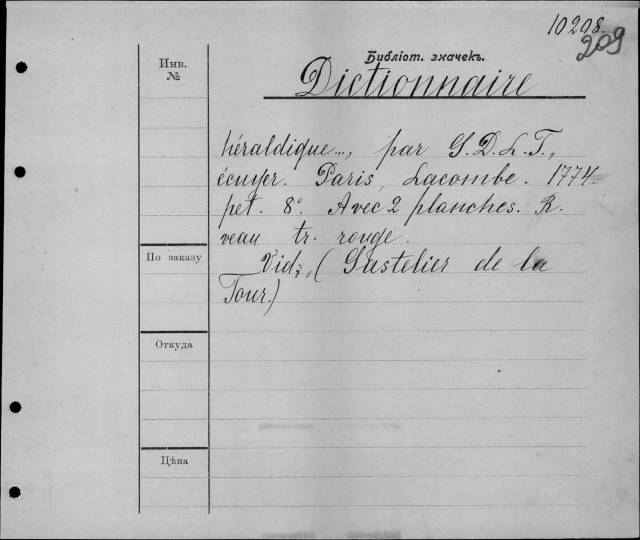 10208.
209
Инв.
№
Библіот. значекъ.
Dictionnaire
héraldique..., par G.D.L.T.,
écuyer. Paris, Lacombe. 1774.
pet. 8°. Avec 2 planches. R.
veau tr. rouge.
По заказу
Vid. (Gastelier de la
Tour.)
Откуда
Цѣна